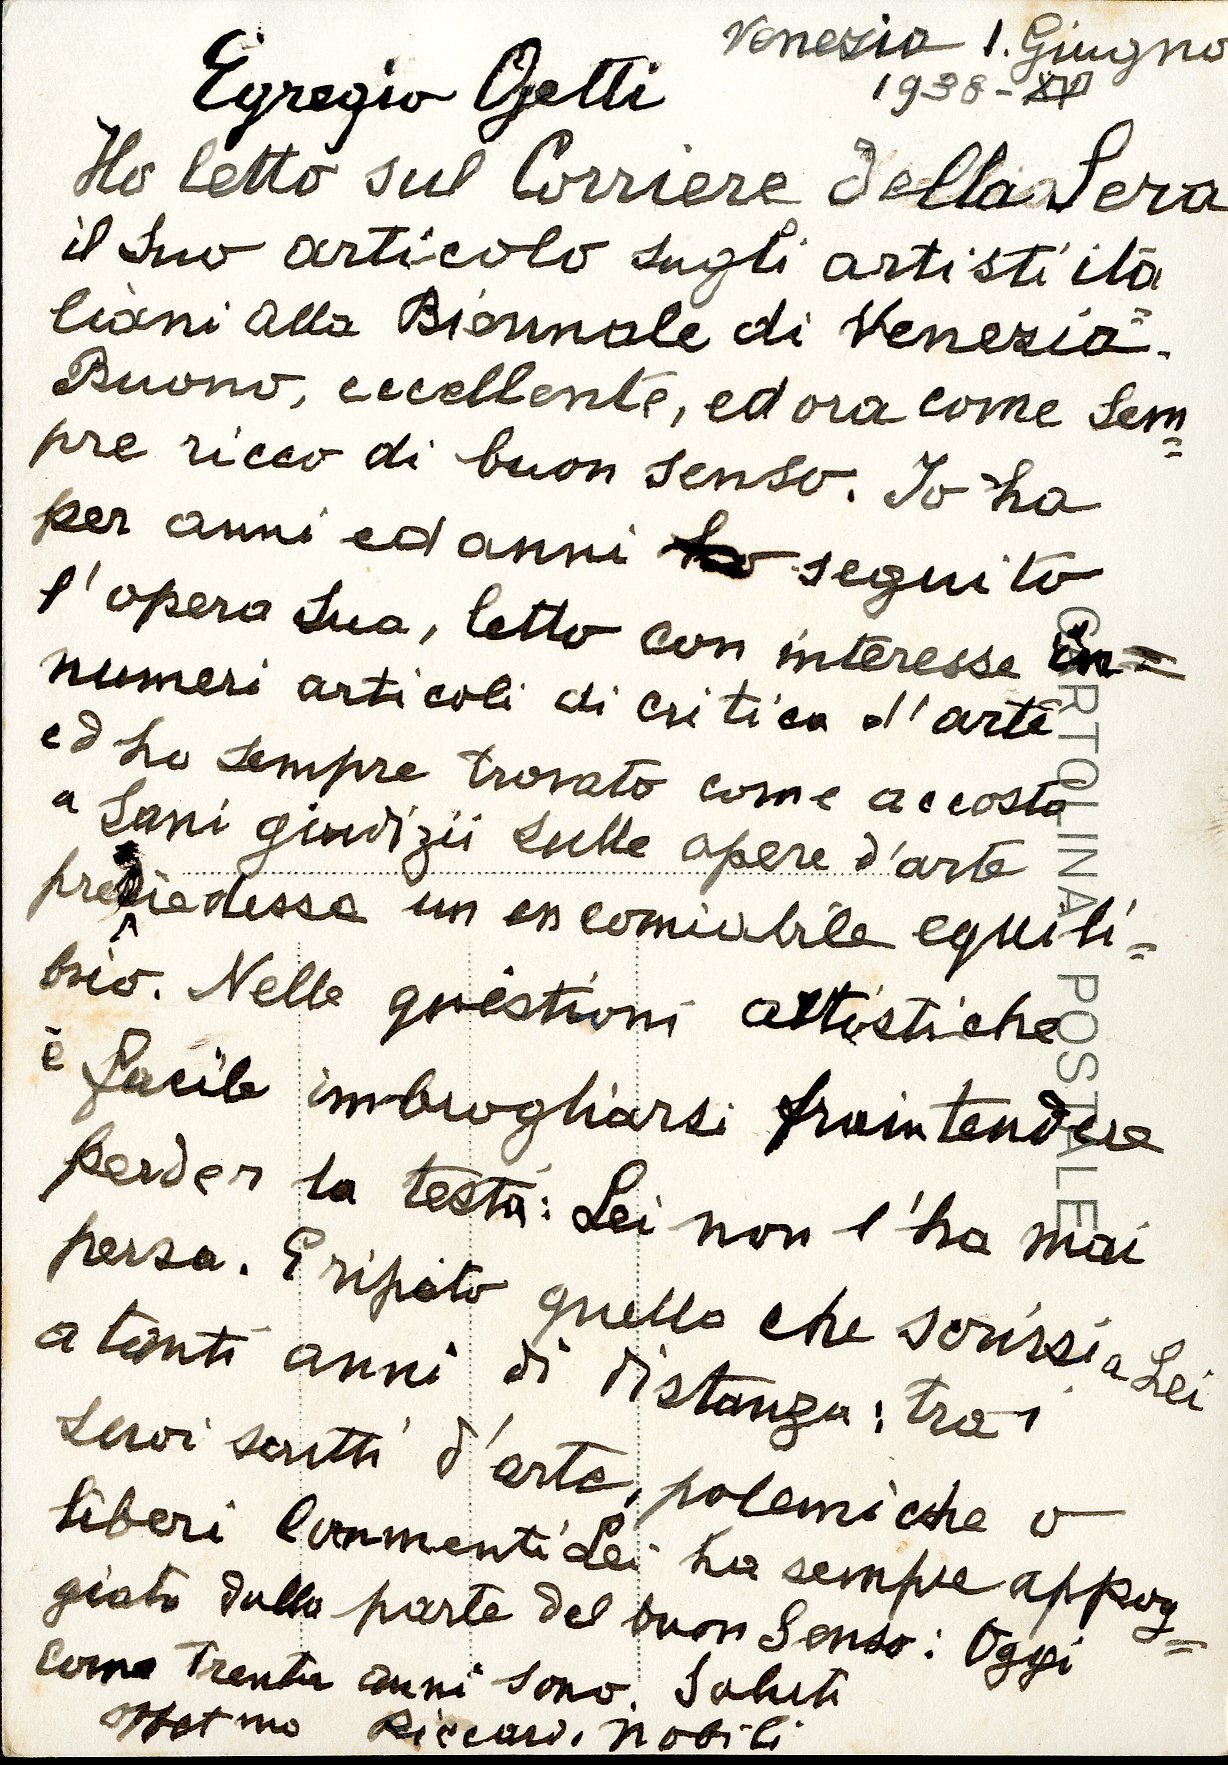 Venezia 1. Giugno
1938-XVI
Egregio Ojetti
Ho letto sul Corriere della Sera
il suo articolo sugli artisti ita
liani alla Biennale di Venezia.
Buono, eccellente, ed ora come sem=
pre ricco di buon senso. Io ha
per anni ed anni seguito
l'opera sua, letto con interesse in=
numeri articoli di critica d'arte
ed ho sempre trovato come accosta
a sani giudizii sulle opere d'arte
presiedesse un encomiabile equili=
brio. Nelle questioni artistiche
è facile imbrogliarsi fraintendere
perder la testa: Lei non l'ha mai
persa. E ripeto quello che scrissi a Lei
a tanti anni di distanza: tra i
suoi scritti d'arte, polemiche o
liberi commenti Lei ha sempre appog=
giato dalla parte del buon senso: Oggi
come trenta anni sono. Saluti
Riccardo Nobili
CARTOLINA POSTALE